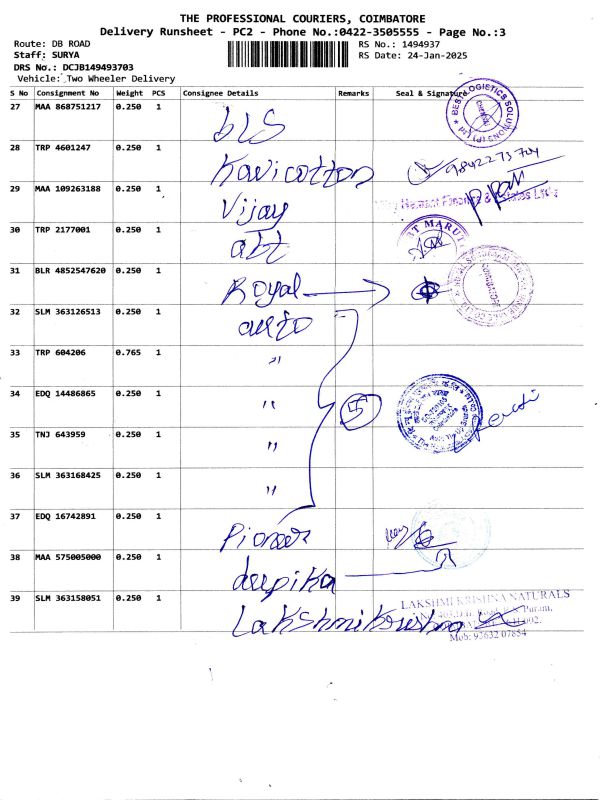 THE PROFESSIONAL COURIERS, COIMBATORE
Delivery Runsheet - PC2 - Phone No.:0422-3505555 - Page No.:3
Route: DB ROAD RS No.: 1494937
Staff: SURYA RS Date: 24-Jan-2025
DRS No.: DCJB149493703
Vehicle: Two Wheeler Delivery
S No Consignment No Weight PCS Consignee Details Remarks Seal & Signature
27 MAA 868751217 0.250 1 bLS BEST LOGISTICS SOLUTIONS (P) Ltd CHENNAI
28 TRP 4601247 0.250 1 Kavi cotton 9842275704
29 MAA 109263188 0.250 1 Vijay
30 TRP 2177001 0.250 1 abt
31 BLR 4852547620 0.250 1 Royal
32 SLM 363126513 0.250 1 auto
33 TRP 604206 0.765 1 "
34 EDQ 14486865 0.250 1 " 5
35 TNJ 643959 0.250 1 "
36 SLM 363168425 0.250 1 "
37 EDQ 16742891 0.250 1 Pioneer
38 MAA 575005000 0.250 1 deepika
39 SLM 363158051 0.250 1 Lakshmi Krishna LAKSHMI KRISHNA NATURALS
Puram,
Mob: 93632 07854